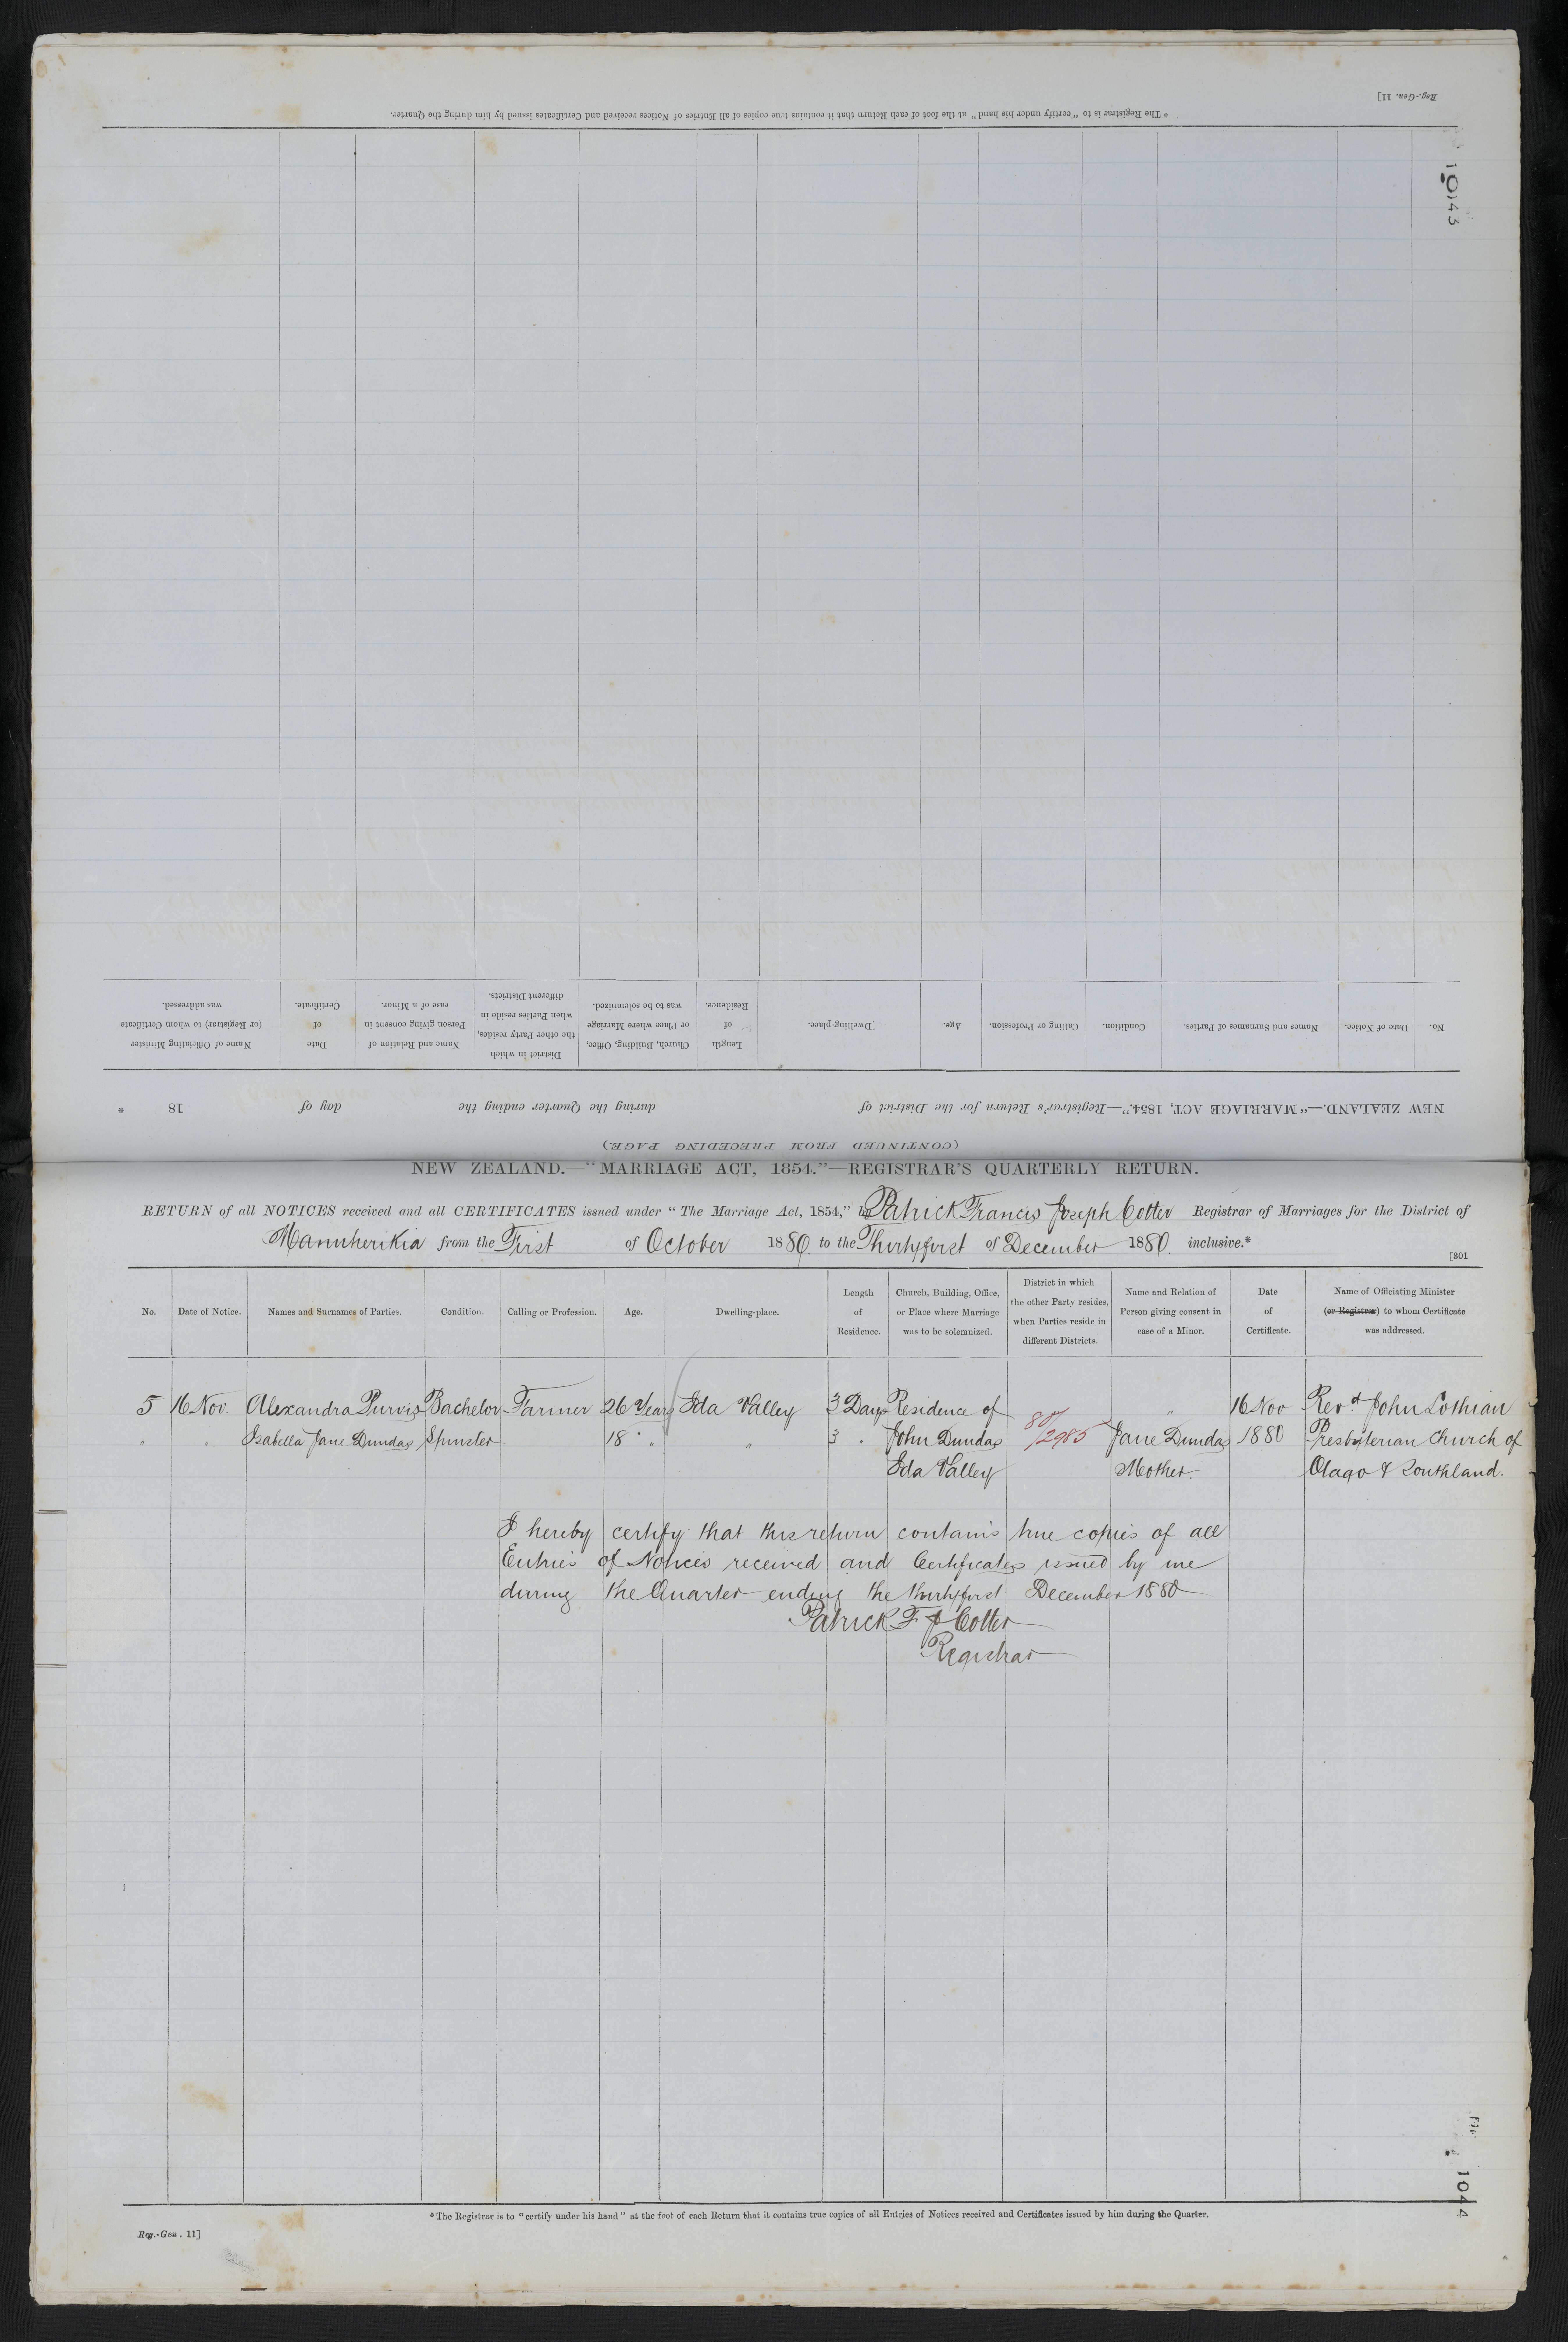 Reg.-Gen. 11]
* The Registrar is to "certify under his hand" at the foot of each Return that it contains true copies of all Entries of Notices received and Certificates issued by him during the Quarter.
1043
No. Date of Notice. Names and Surnames of Parties. Condition. Calling or Profession. Age. Dwelling-place. Length of Residence. Church, Building, Office, or Place where Marriage was to be solemnized. District in which the other Party resides, when Parties reside in different Districts. Name and Relation of Person giving consent in case of a Minor. Date of Certificate. Name of Officiating Minister (or Registrar) to whom Certificate was addressed.
NEW ZEALAND.—"MARRIAGE ACT, 1854."—Registrar's Return for the District of during the Quarter ending the day of 18 *
(CONTINUED FROM PRECEDING PAGE.)
NEW ZEALAND.—"MARRIAGE ACT, 1854."—REGISTRAR'S QUARTERLY RETURN.
RETURN of all NOTICES received and all CERTIFICATES issued under "The Marriage Act, 1854," by Patrick Francis Joseph Cotter Registrar of Marriages for the District of
Manuherikia from the First of October 1880 to the Thirtyfirst of December 1880 inclusive.*
[301
No. Date of Notice. Names and Surnames of Parties. Condition. Calling or Profession. Age. Dwelling-place. Length of Residence. Church, Building, Office, or Place where Marriage was to be solemnized. District in which the other Party resides, when Parties reside in different Districts. Name and Relation of Person giving consent in case of a Minor. Date of Certificate. Name of Officiating Minister (or Registrar) to whom Certificate was addressed.
5 16 Nov. Alexandra Purvis Bachelor Farmer 26 Years Ida Valley 3 Days Residence of 80/2985 " 16 Nov Revd John Lothian
" " Isabella Jane Dundas Spinster 18 " " 3 " John Dundas Jane Dundas 1880 Presbyterian Church of
Ida Valley Mother. Otago & Southland.
I hereby certify that this return contains true copies of all
Entries of Notices received and Certificates issued by me
during the Quarter ending the thirtyfirst December 1880
Patrick F J Cotter
Registrar
1044
* The Registrar is to "certify under his hand" at the foot of each Return that it contains true copies of all Entries of Notices received and Certificates issued by him during the Quarter.
Reg.-Gen. 11]